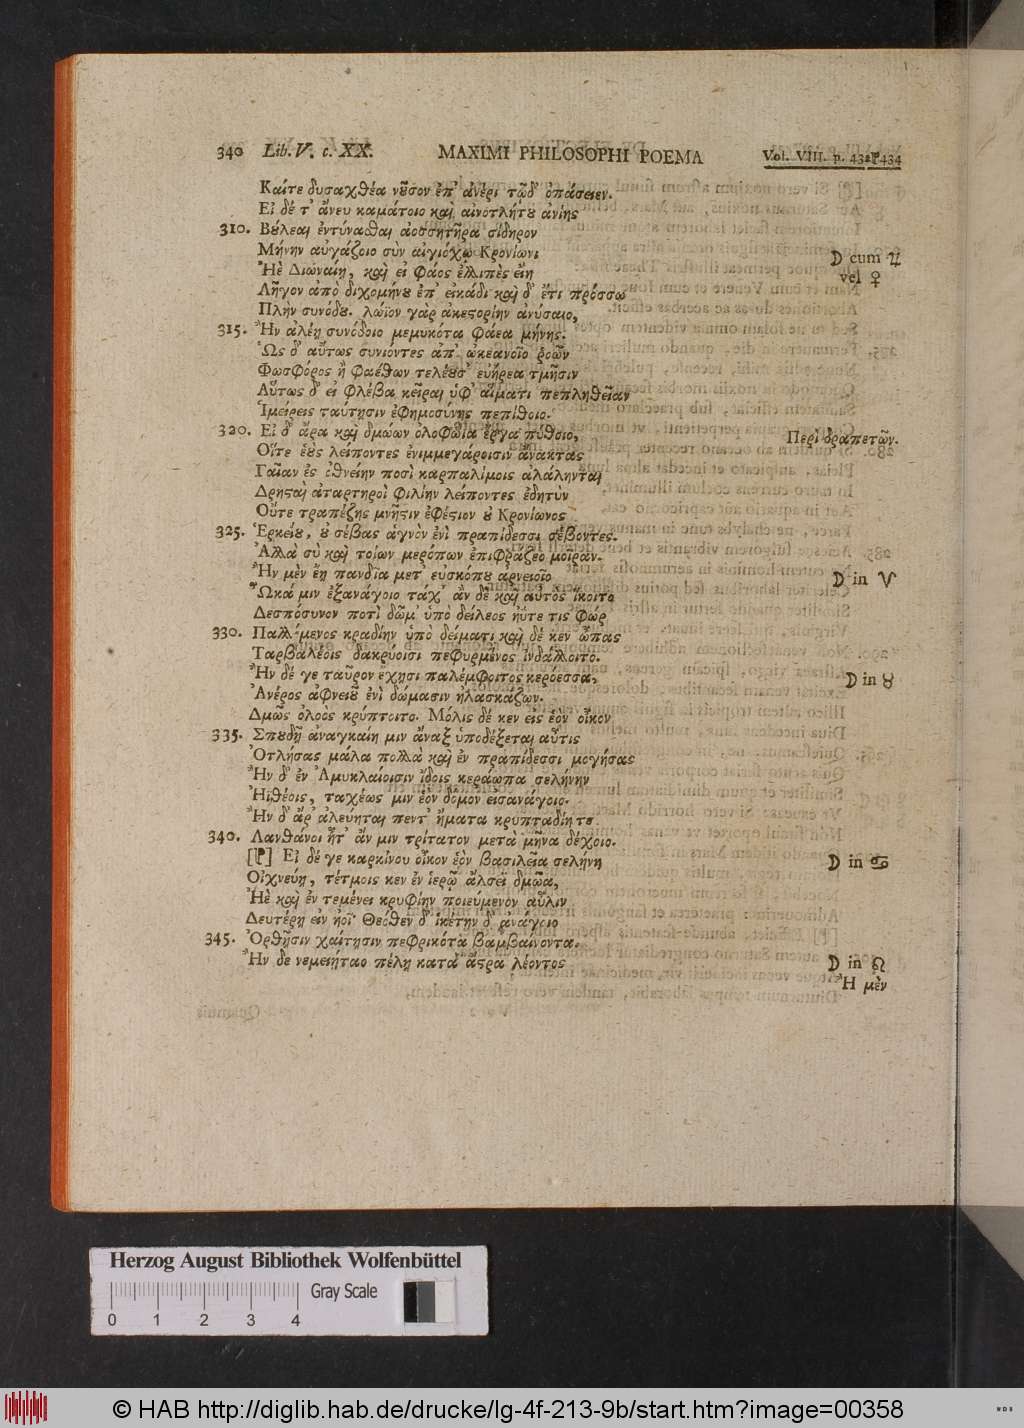 340 Lib. V. c. XX. MAXIMI PHILOSOPHI POEMA Vol. VIII. p. 432 434
Καίτε δυσαχθέα νοῦσον ἐπ' ἀνέρι τῷδ' ὀπάσειεν.
Εἰ δέ τ' ἄνευ καμάτοιο καὶ αἰνοτλήτου ἀνίης
310. Βούλεαι ἐντύνασθαι ἀοσσητῆρα σίδηρον
Μήνην αὐγάζοιο σὺν αἰγιόχῳ Κρονίωνι ☽ cum ♃
Ἠὲ Διωναίῃ, καὶ εἰ φάος ἐλλιπὲς εἴη vel ♀
Λῆγον ἀπὸ διχομήνου ἐπ' εἰκάδι καὶ δ' ἔτι πρόσσω
Πλὴν συνόδου. λώϊον γὰρ ἀκεστορίην ἀνύσαιο,
315. Ἢν ἀλέῃ συνόδοιο μεμυκότα φάεα μήνης.
Ὣς δ' αὔτως συνιόντες ἀπ' ὠκεανοῖο ῥοάων
Φωσφόρος ἢ φαέθων τελέουσ' εὐήρεα τμῆσιν
Αὔτως δ' εἰ φλέβα κεῖραι ὑφ' αἵματι πεπληθεῖαν
Ἱμείρεις ταύτῃσιν ἐφημοσύνῃς πεπίθοιο.
320. Εἰ δ' ἄρα καὶ δμώων ὀλοφώϊα ἔργα πύθοιο, Περὶ δραπετῶν.
Οἵτε ἑοὺς λείποντες ἐνιμμεγάροισιν ἄνακτας
Γαῖαν ἐς ὀθνείην ποσὶ καρπαλίμοις ἀλάληνται
Δρηςαὶ ἀταρτηροὶ φιλίην λείποντες ἐδητὺν
Οὔτε τραπέζης μνῆστιν ἐφέστιον οὐ Κρονίωνος
325. Ἑρκείου, οὐ σέβας ἁγνὸν ἐνὶ πραπίδεσσι σέβοντες.
Ἀλλὰ σὺ καὶ τοίων μερόπων ἐπιφράζεο μοῖραν.
Ἢν μὲν ἔῃ πανδῖα μετ' εὐσκόπου ἀρνειοῖο ☽ in ♈
Ὦκά μιν ἐξανάγοιο τάχ' ἂν δὲ καὶ αὐτὸς ἵκοιτο
Δεσπόσυνον ποτὶ δῶμ' ὑπὸ δείλεος ἠΰτε τις φώρ
330. Παλλόμενος κραδίην ὑπὸ δείματι καὶ δέ κεν ὦπας
Ταρβαλέοις δακρύοισι πεφυρμένος ἰνδάλλοιτο.
Ἢν δέ γε ταῦρον ἔχησι παλέμφοιτος κερόεσσα, ☽ in ♉
Ἀνέρος ἀφνειοῦ ἐνὶ δώμασιν ἠλασκάζων.
Δμὼς ὀλοὸς κρύπτοιτο. Μόλις δέ κεν εἰς ἑὸν οἶκον
335. Σπουδῇ ἀναγκαίῃ μιν ἄναξ ὑποδέξεται αὖτις
Ὀτλήσας μάλα πολλὰ καὶ ἐν πραπίδεσσι μογήσας
Ἢν δ' ἐν Ἀμυκλαίοισιν ἴδοις κεράωπα σελήνην
Ἠϊθέοις, ταχέως μιν ἑὸν δόμον εἰσανάγοιο.
Ἢν δ' ἄρ' ἀλεύηται πέντ' ἤματα κρυπταδίη τε
340. Λανθάνοι ἦτ' ἄν μιν τρίτατον μετὰ μῆνα δέχοιο.
Εἰ δέ γε καρκίνου οἶκον ἑὸν βασιλεῖα σελήνη ☽ in ♋
Οἰχνεύῃ, τέτμοις κεν ἐν ἱερῷ ἄλσεϊ δμῶα,
Ἠὲ καὶ ἐν τεμένει κρυφίην ποιεύμενον αὖλιν
Δευτέρῃ εἰν ἠοῖ. Θεόθεν δ' ἱκέτην δ' ἀνάγοιο
345. Ὀρθῇσιν χαίτῃσιν πεφρικότα βαμβαίνοντα.
Ἢν δε νεμειήταο πέλῃ κατὰ ἄστρα λέοντος ☽ in ♌
Ἡ μὲν
Herzog August Bibliothek Wolfenbüttel
Gray Scale
0 1 2 3 4
© HAB http://diglib.hab.de/drucke/lg-4f-213-9b/start.htm?image=00358